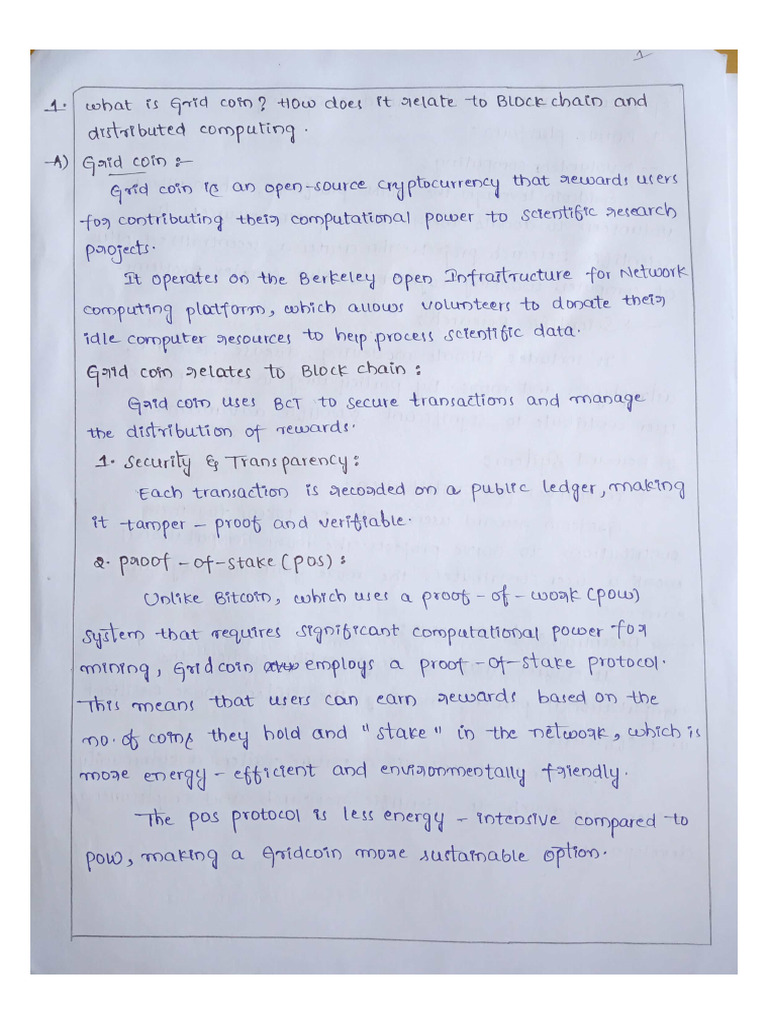 1
1. what is Grid coin? How does it relate to Block chain and
distributed computing.
A) Grid coin :-
Grid coin is an open-source cryptocurrency that rewards users
for contributing their computational power to scientific research
projects.
It operates on the Berkeley open Infrastructure for Network
computing platform, which allows volunteers to donate their
idle computer resources to help process scientific data.
Grid coin relates to Block chain :
Grid coin uses BCT to secure transactions and manage
the distribution of rewards.
1. Security & Transparency :
Each transaction is recorded on a public ledger, making
it tamper - proof and verifiable.
2. proof - of - stake (pos) :
Unlike Bitcoin, which uses a proof - of - work (pow)
system that requires significant computational power for
mining, Gridcoin employs a proof - of - stake protocol.
This means that users can earn rewards based on the
no. of coins they hold and "stake" in the network, which is
more energy - efficient and environmentally friendly.
The pos protocol is less energy - intensive compared to
pow, making a Gridcoin more sustainable option.